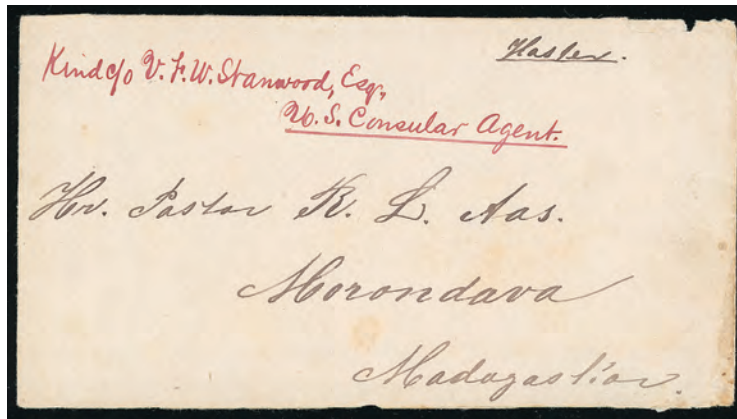 Haster.
Kind c/o V. F. W. Stanwood, Esq.,
U. S. Consular Agent.
Hr. Pastor K. L. Aas.
Morondava
Madagaskar.